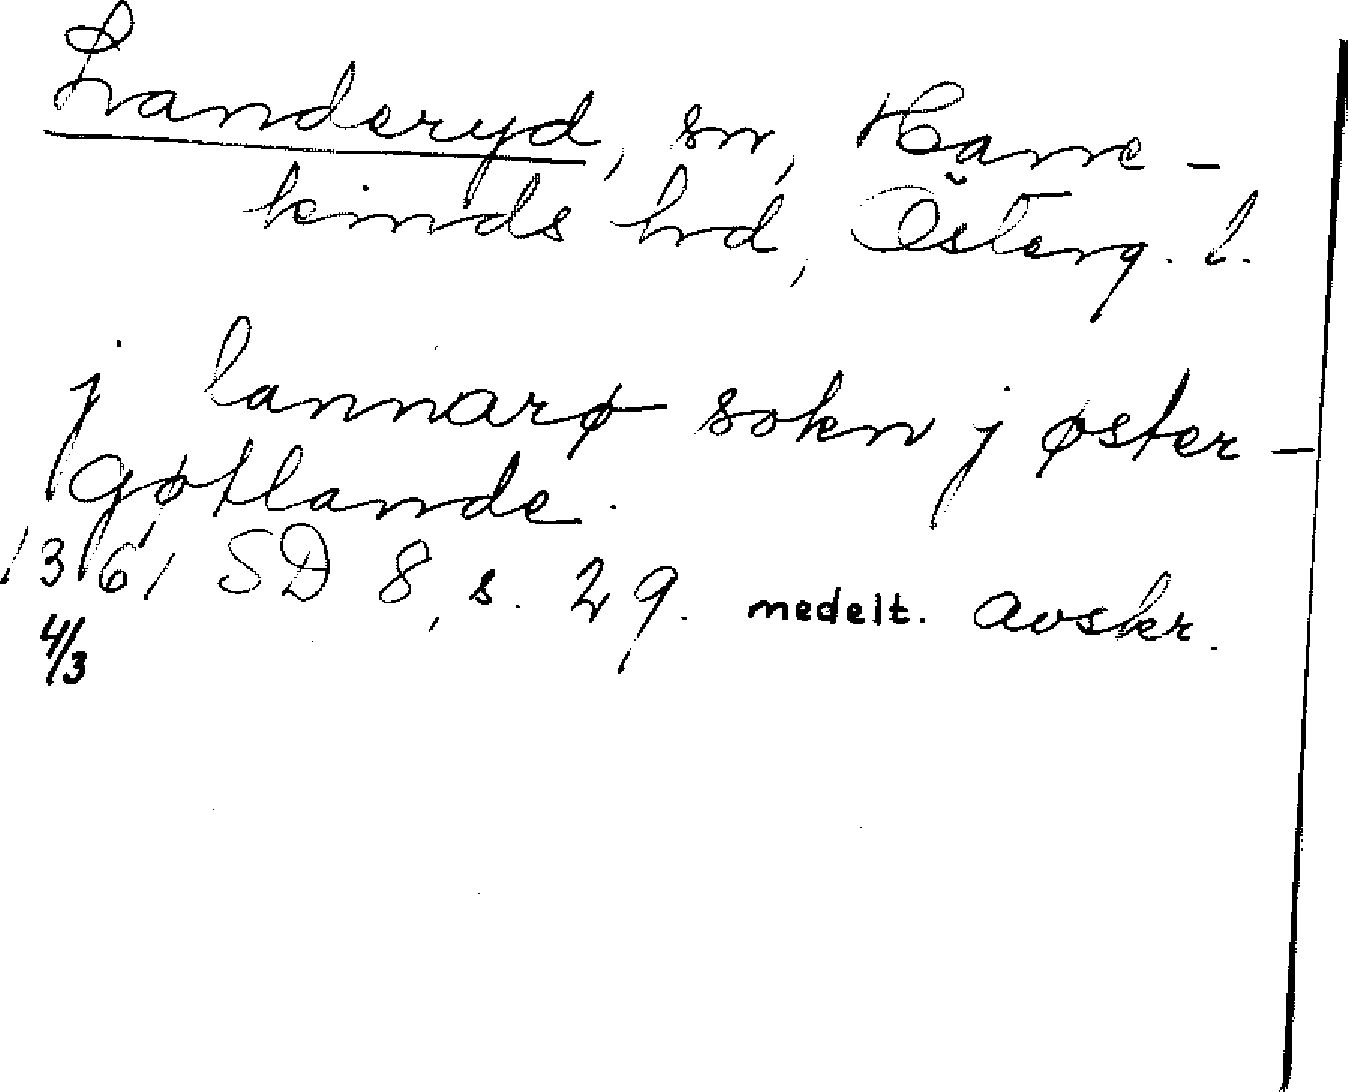 Landeryd, sn, Hane-
kinds hd, Österg. l.
j lannarø sokn j øster-
gøtlande.
1361 SD 8, s. 29. medelt. avskr.
4/3